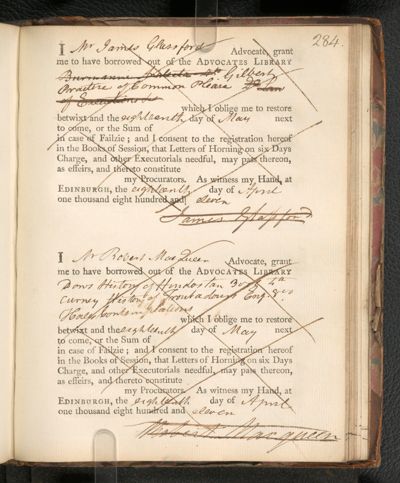 284.
I Mr James Glassford Advocate, grant
me to have borrowed out of the ADVOCATES LIBRARY
Gilbert
Practice of Common Pleas Do Law
of Executions
which I oblige me to restore
betwixt and the eighteenth day of May next
to come, or the Sum of
in case of Failzie; and I consent to the registration hereof
in the Books of Session, that Letters of Horning on six Days
Charge, and other Executorials needful, may pass thereon,
as effeirs, and thereto constitute
my Procurators. As witness my Hand, at
EDINBURGH, the eighteenth day of April
one thousand eight hundred and eleven
James Glassford
I Mr Robert MacQueen Advocate, grant
me to have borrowed out of the ADVOCATES LIBRARY
Dows History of Hindostan 3 vols 4to
History of Troubadours Eng. 8vo
which I oblige me to restore
betwixt and the eighteenth day of May next
to come, or the Sum of
in case of Failzie; and I consent to the registration hereof
in the Books of Session, that Letters of Horning on six Days
Charge, and other Executorials needful, may pass thereon,
as effeirs, and thereto constitute
my Procurators. As witness my Hand, at
EDINBURGH, the eighteenth day of April
one thousand eight hundred and eleven
Robert Macqueen